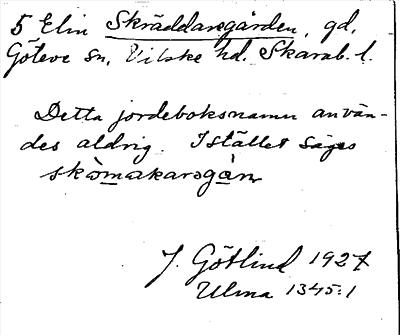 5 Elin Skräddaregården, gd,
Göteve sn, Vilske hd. Skarab. l.
Detta jordeboksnamn använ-
des aldrig. Istället säges
skòmakaregàn
J. Götlind 1927
Ulma 1345:1